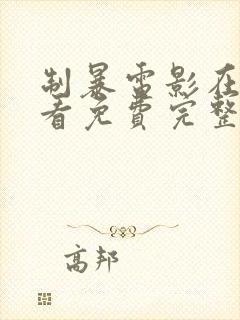 制暴雷影在
看免费完整
高邦